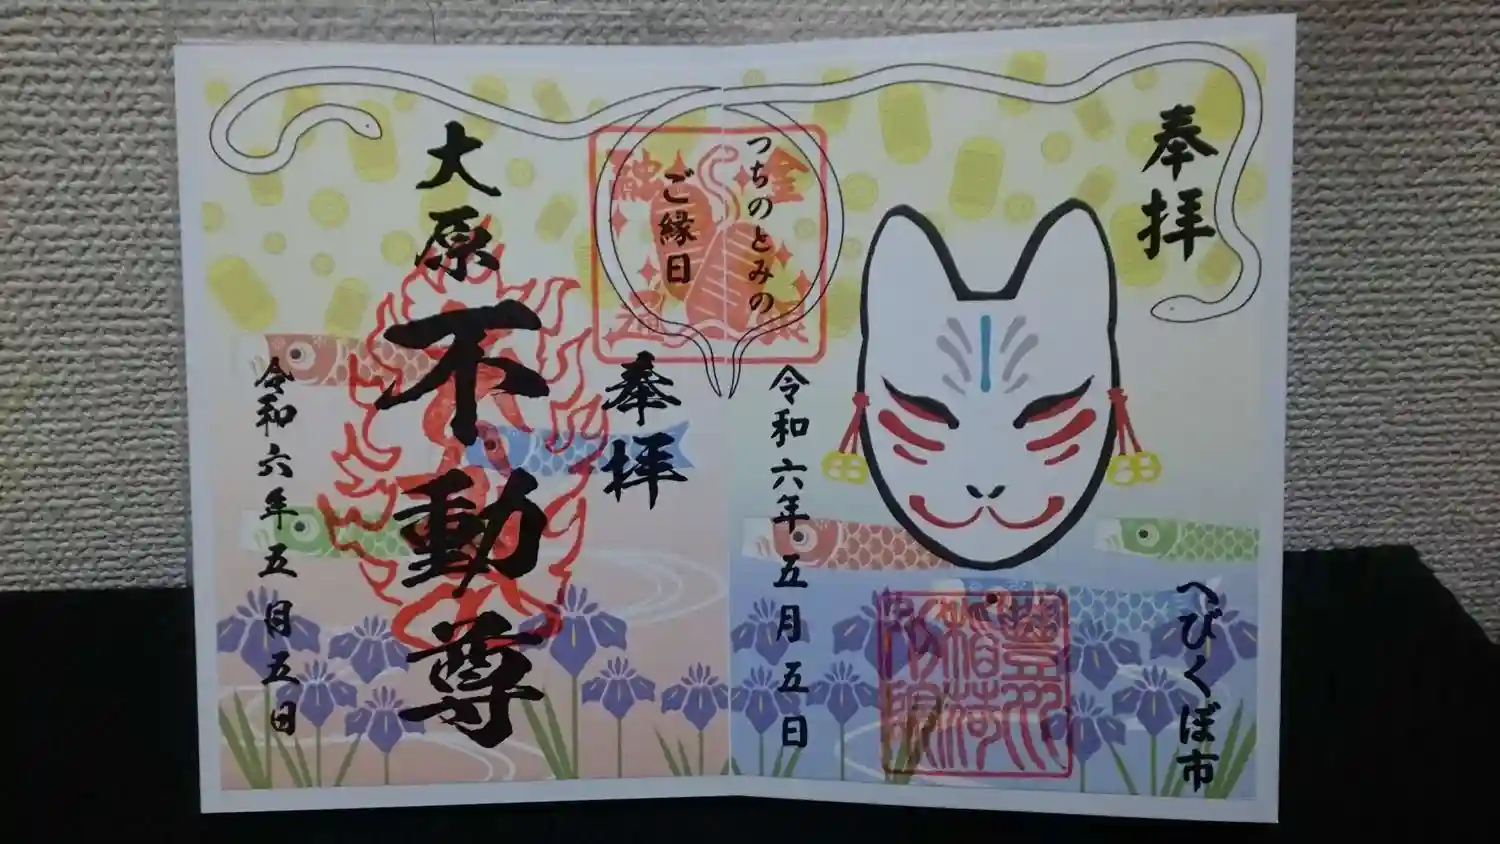 奉拝
へびくぼ市
つちのとみの
ご縁日
令和六年五月五日
奉拝
大原
不動尊
令和六年五月五日